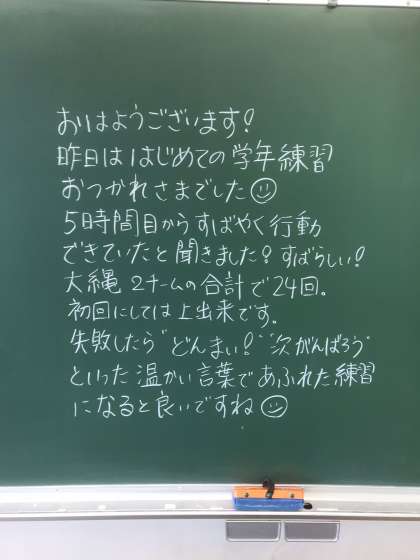 おはようございます!
昨日ははじめての学年練習
おつかれさまでした☺
5時間目からすばやく行動
できていたと聞きました!すばらしい!
大縄 2チームの合計で24回。
初回にしては上出来です。
失敗したら"どんまい!""次がんばろう"
といった温かい言葉であふれた練習
になると良いですね☺